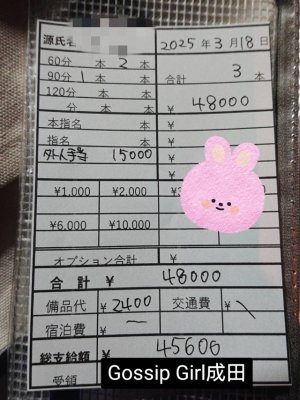 源氏名
2025年3月18日
60分 本 2 本
90分 1 本 本
合計 3 本
120分 本 本
分 本 本
¥ 48000
本指名 本 ¥
指名 本 ¥
外人手当 15000 ¥
¥1,000 ¥2,000
¥6,000 ¥10,000
オプション合計 ¥
合計 ¥ 48000
備品代 ¥2400 交通費 ¥\
宿泊費 ¥ ー
総支給額 ¥ 45600
受領
Gossip Girl成田